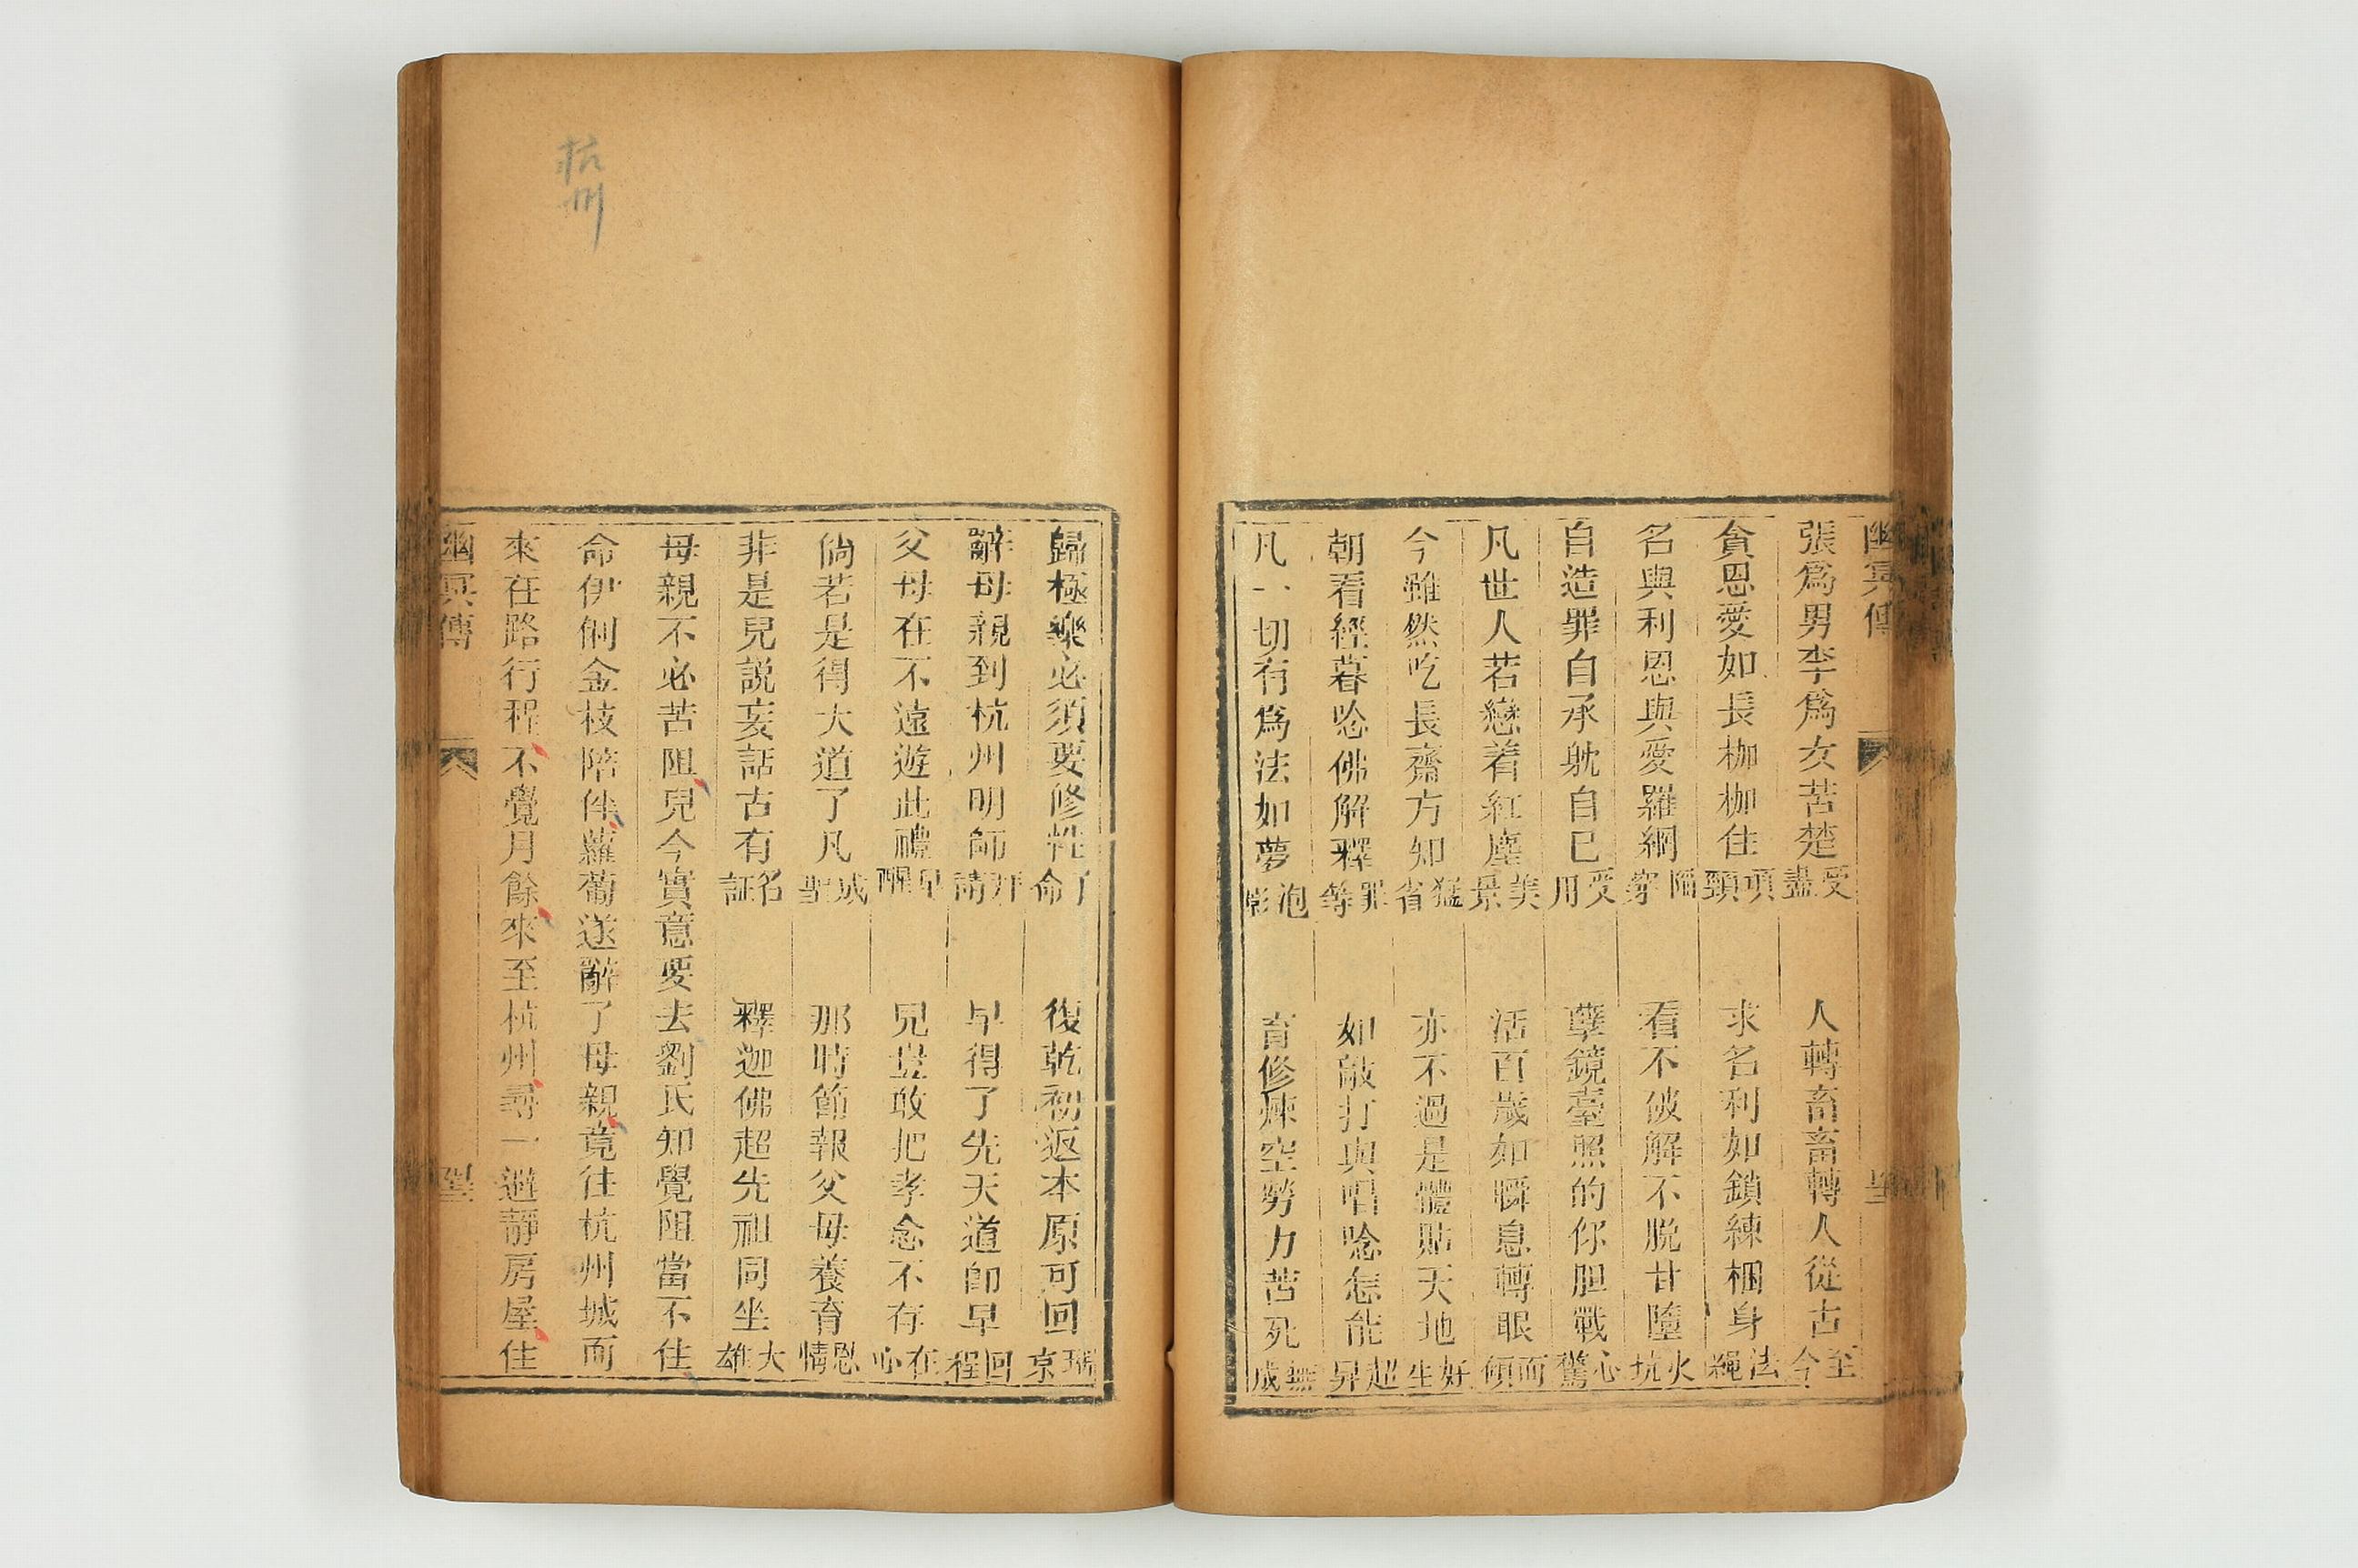 幽冥傳
張爲男李爲女苦楚受盡　人轉畜畜轉人從古至今
貪恩愛如長枷枷住項頸　求名利如鎖練梱身法繩
名與利恩與愛羅網陷穽　看不破解不脫甘墮火坑
自造罪自承躭自已受用　孽鏡臺照的你胆戰心驚
凡世人若戀着紅塵美景　活百歲如瞬息轉眼而傾
今雖然吃長齋方知猛省　亦不過是體貼天地好生
朝看經暮唸佛解釋罪等　如敲打與唱唸怎能超昇
凡一切有爲法如夢泡影　盲修煉空勞力苦死無成
歸極樂必須要修性了命　復乾初返本原可回瑞京
辭母親到杭州明師拜請　早得了先天道卽早回程
父母在不遠遊此禮早醒　兒豈敢把孝念不存在心
倘若是得大道了凡成聖　那時節報父母養育恩情
非是兒説妄話古有名証　釋迦佛超先祖同坐大雄
母親不必苦阻兒今實意要去劉氏知覺阻當不住
命伊俐金枝陪伴蘿蔔遂辭了母親竟往杭州城而
來在路行程不覺月餘來至杭州尋一避靜房屋住
幽冥傳
杭州